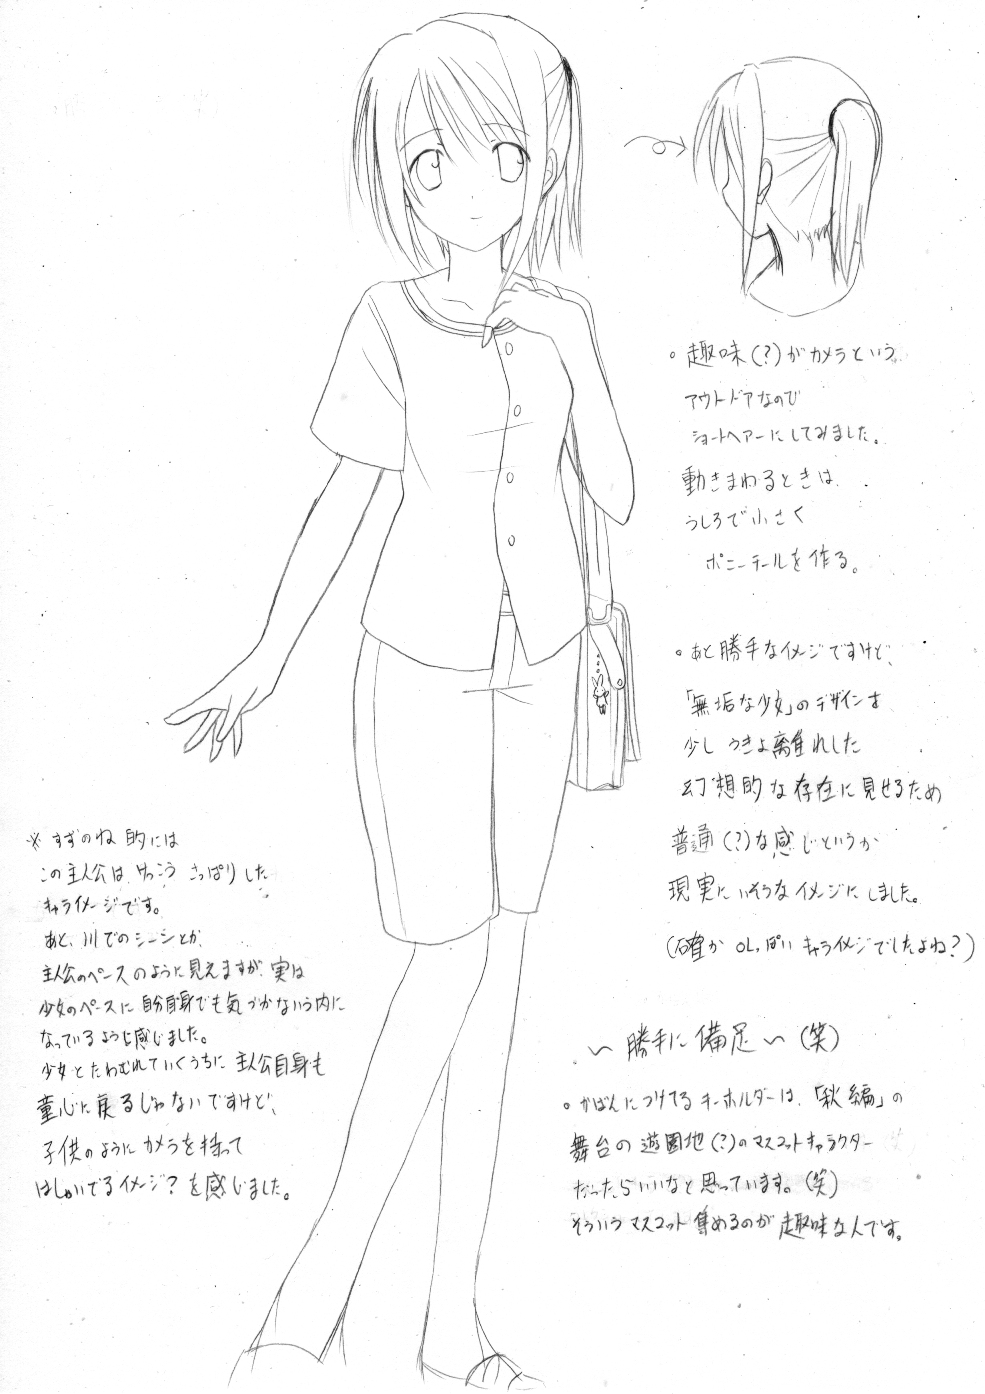 。趣味(?)がカメラという
アウトドアなので
ショートヘアーにしてみました。
動きまわるときは
うしろで小さく
ポニーテールを作る。
。あと勝手なイメージですけど、
「無垢な少女」のデザインを
少し うきよ離れした
幻想的な存在に見せるため
普通(?)な感じというか
現実にいそうなイメージにしました。
(確か OLっぽい キャライメージでしたよね?)
〜 勝手に 備足 〜 (笑)
。かばんにつけてる キーホルダーは、「秋編」の
舞台の 遊園地(?)のマスコットキャラクター
だったらいいなと 思っています。(笑)
そういう マスコット 集めるのが 趣味な人です。
※ すずのね 的には
この主人公は、けっこう さっぱりした
キャライメージです。
あと、川でのシーンとか
主人公のペースのように見えますが、実は
少女のペースに 自分自身でも気づかないう内に
なっているように感じました。
少女とたわむれていくうちに 主人公自身も
童心に戻るじゃないですけど、
子供のようにカメラを持って
はしゃいでるイメージ? を感じました。